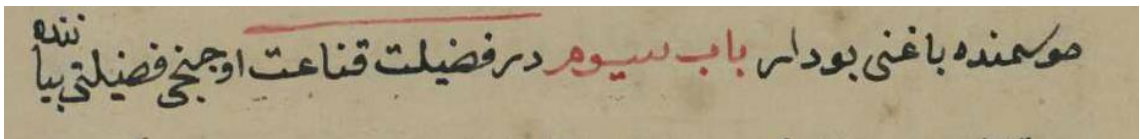 موسمنده باغنى بودار باب سيوم در فضيلت قناعت اوجنجى فضيلتى بياننده